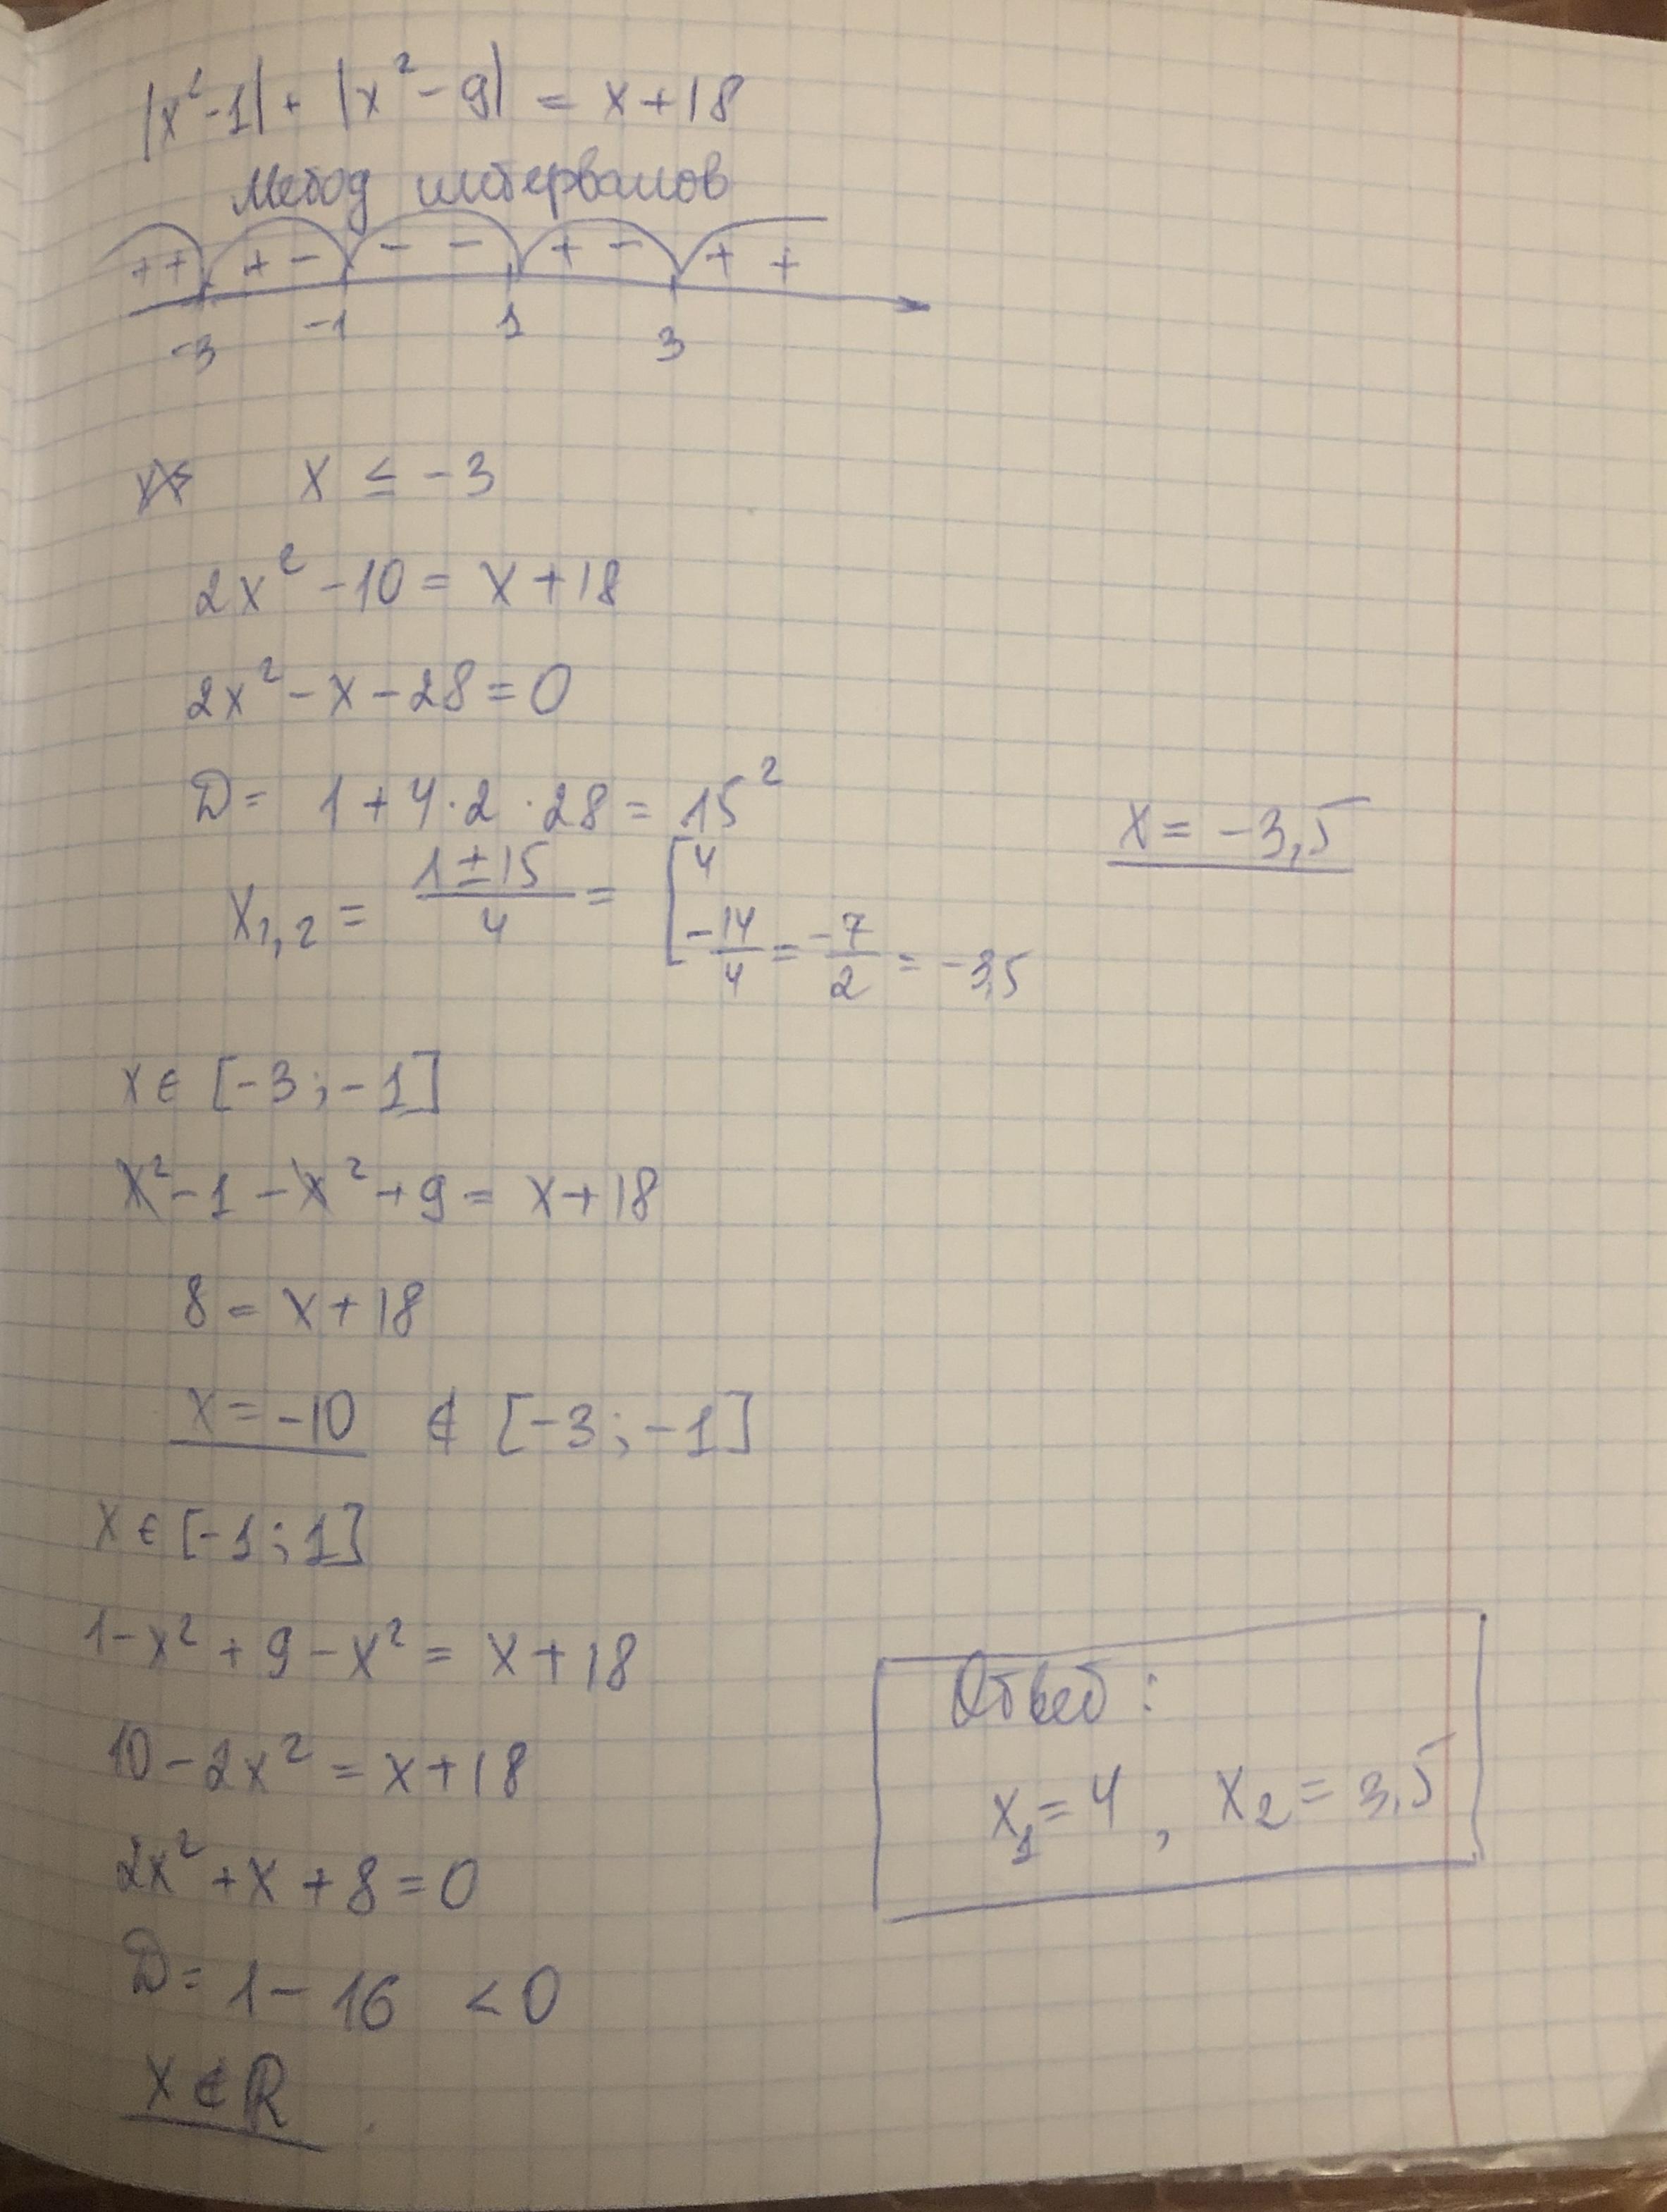 |x²-1| + |x²-9| = x+18
Метод интервалов
++ +- - - + - + +
-3 -1 1 3
x ≤ -3
2x²-10 = x+18
2x²-x-28=0
D= 1+4·2·28 = 15²
x = -3,5
x₁,₂ = (1±15)/4 = [4
-14/4 = -7/2 = -3,5
x ∈ [-3; -1]
x²-1-x²+9 = x+18
8 = x+18
x = -10 ∉ [-3; -1]
x ∈ [-1; 1]
1-x²+9-x² = x+18
10-2x² = x+18
2x²+x+8=0
D= 1-16 <0
x ∉ ℝ
Ответ:
x₁=4, x₂=3,5